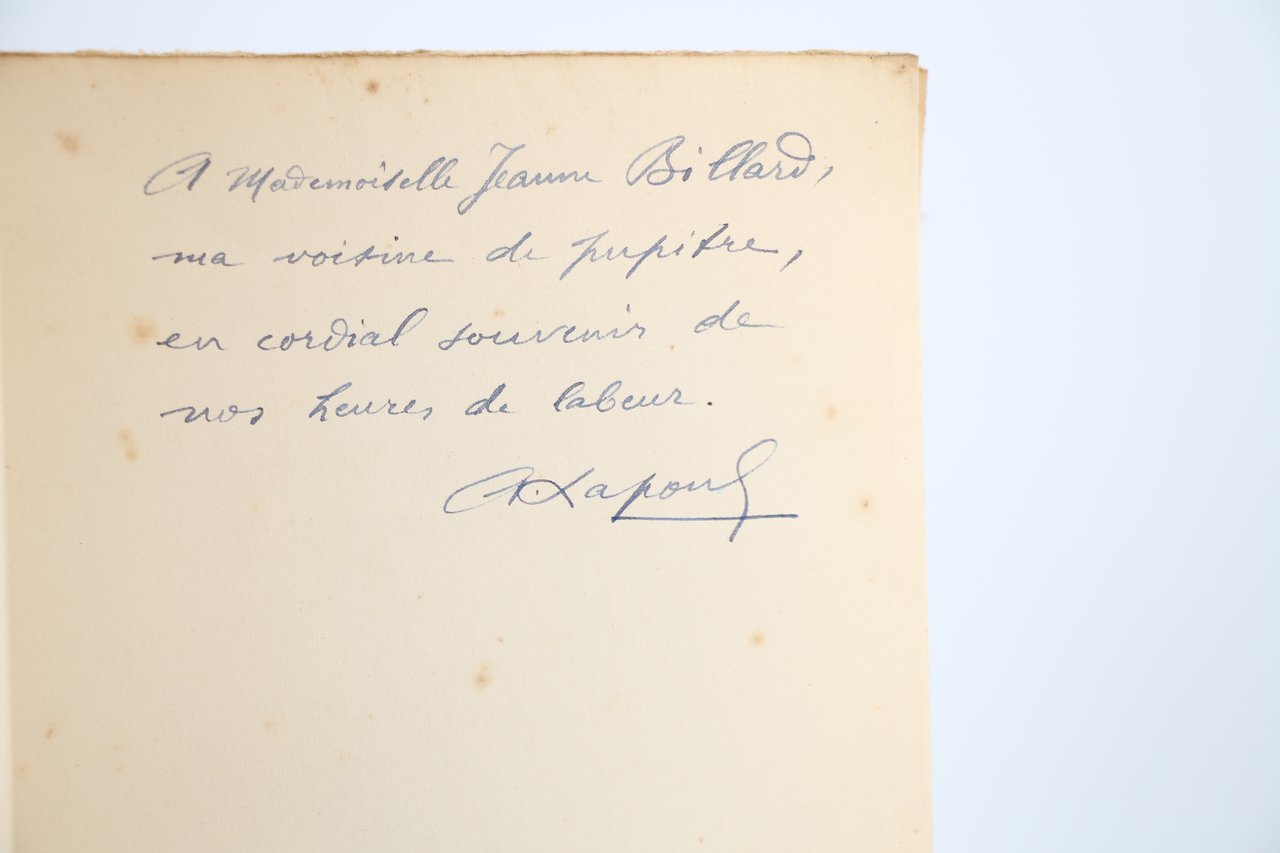 A Mademoiselle Jeanne Billard,
ma voisine de pupitre,
en cordial souvenir de
nos heures de labeur.